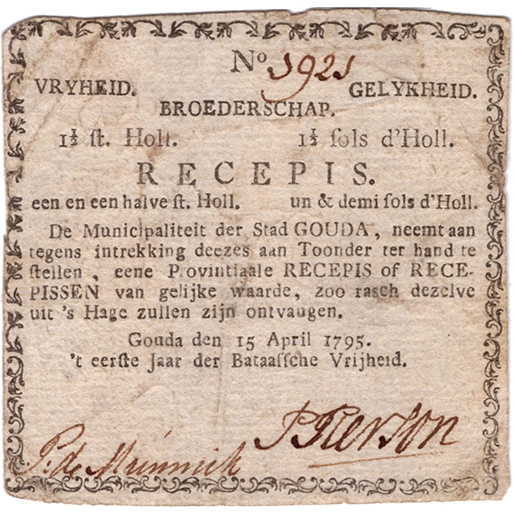 No 5921
VRYHEID. GELYKHEID.
BROEDERSCHAP.
1½ ſt. Holl. 1½ ſols d'Holl.
RECEPIS.
een en een halve ſt. Holl. un & demi ſols d'Holl.
De Municipaliteit der Stad GOUDA, neemt aan
tegens intrekking deezes aan Toonder ter hand te
ſtellen, eene Provintiaale RECEPIS of RECE-
PISSEN van gelijke waarde, zoo raſch dezelve
uit 's Hage zullen zijn ontvangen.
Gouda den 15 April 1795.
't eerſte Jaar der Bataafſche Vrijheid.
P. de Muinnick